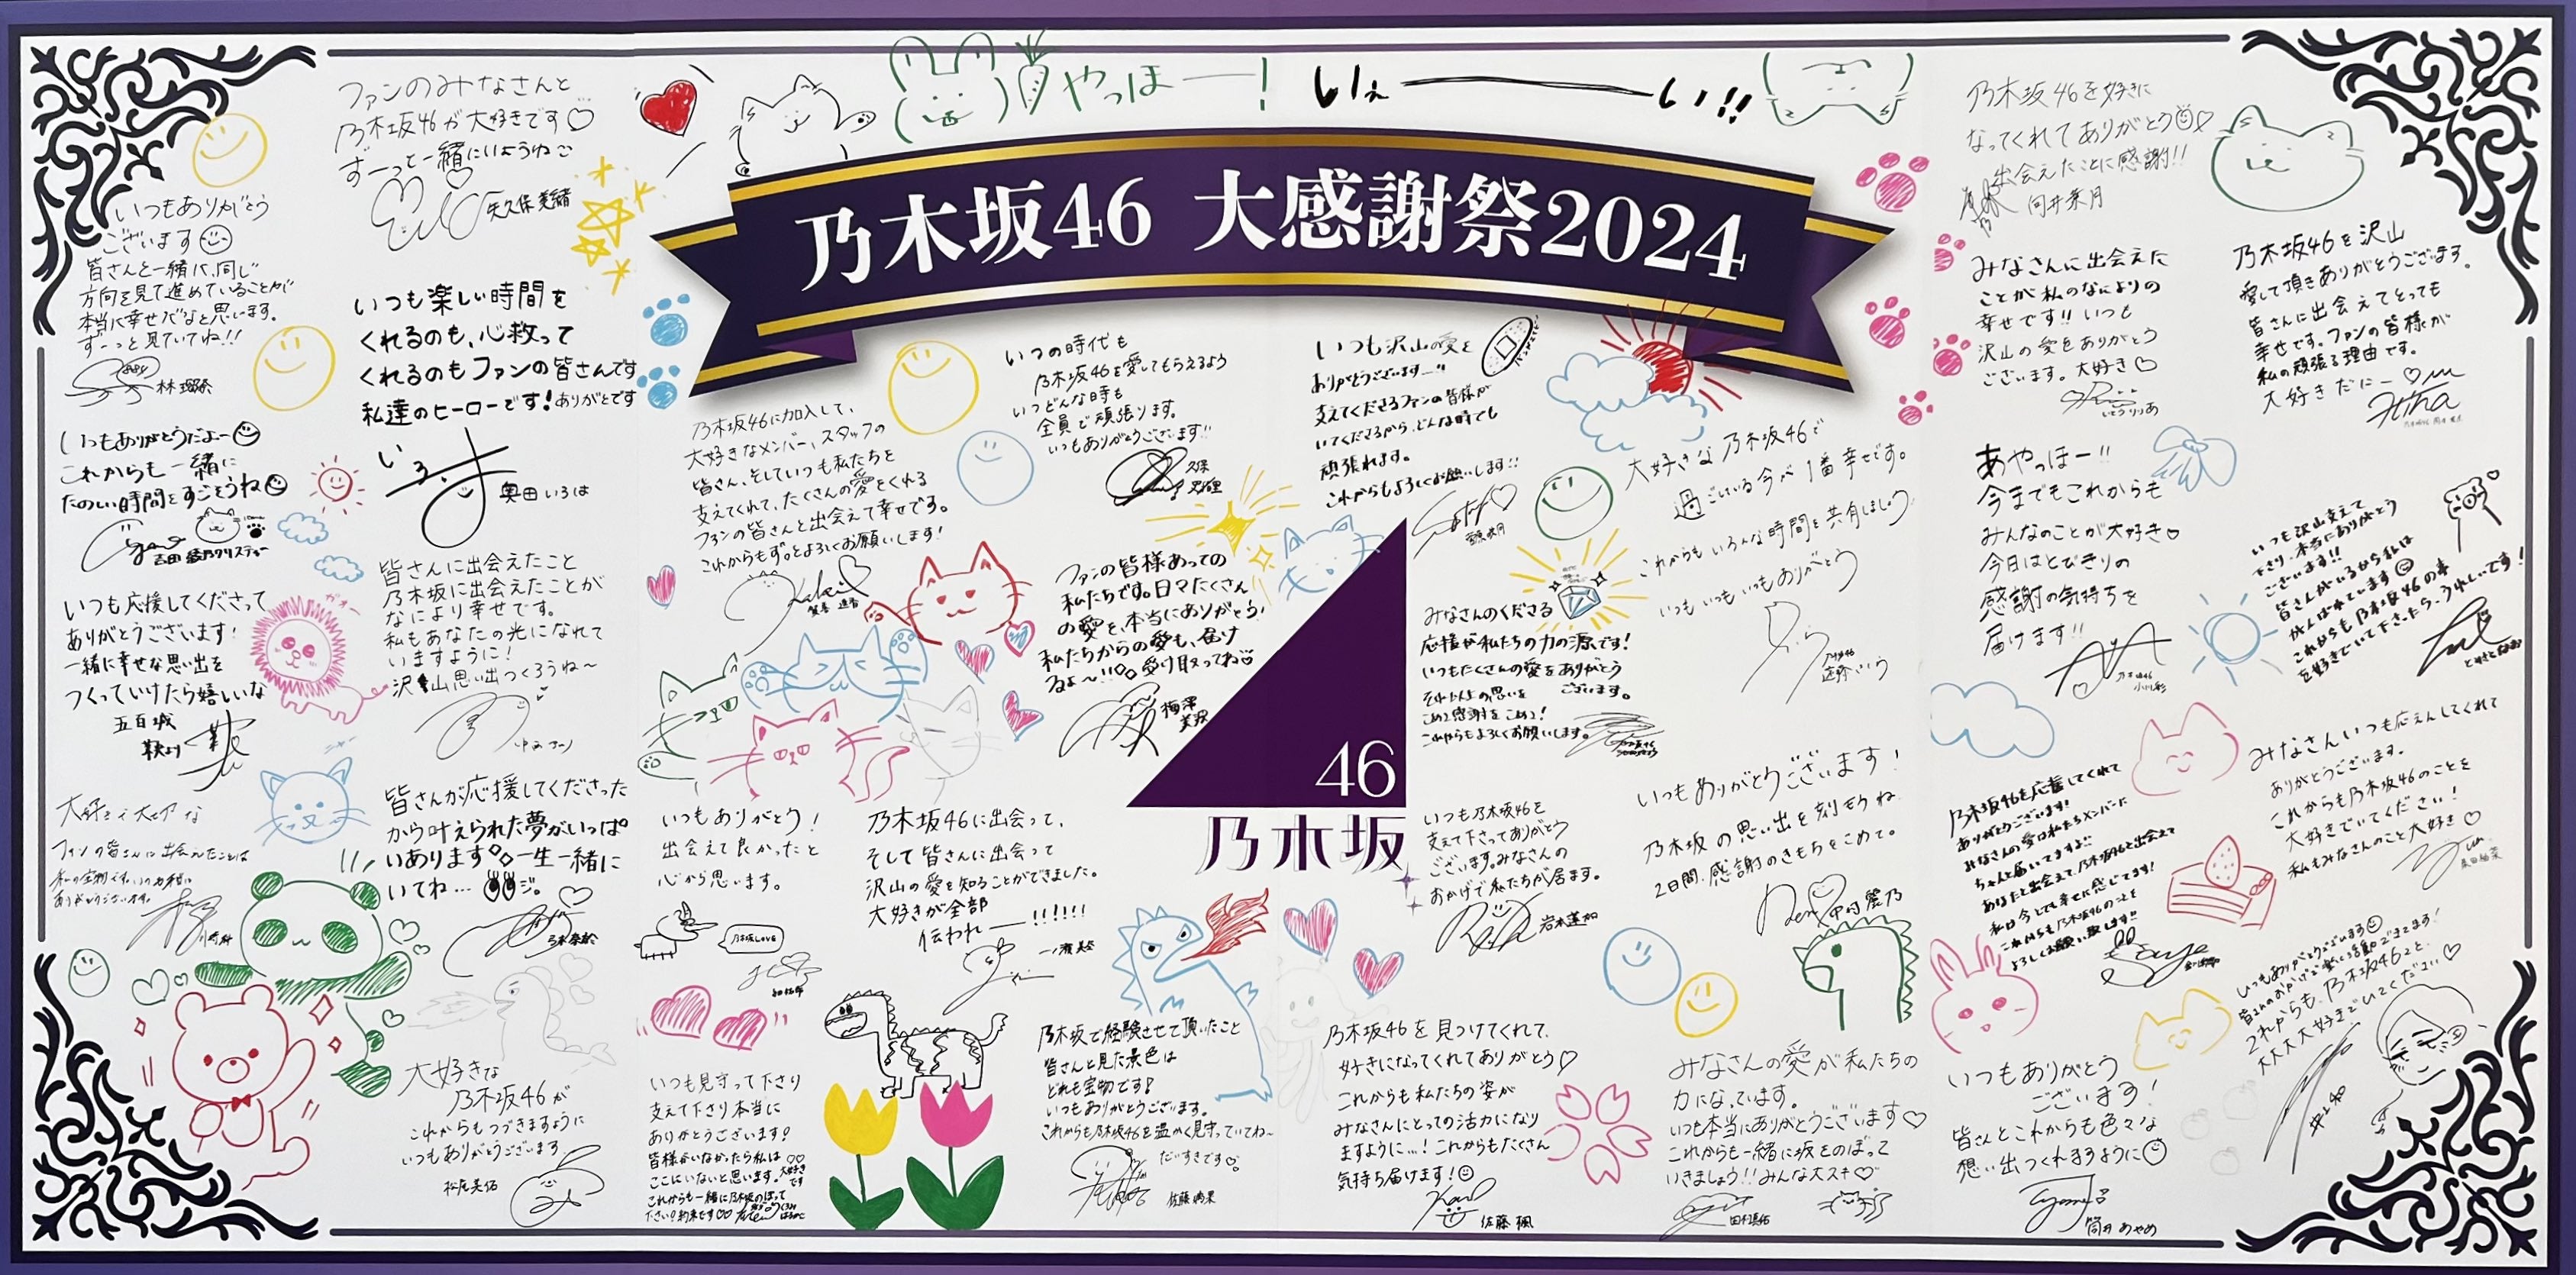 やっほー！
いぇーい!!
乃木坂46 大感謝祭2024
ファンのみなさんと
乃木坂46が大好きです♡
ずーっと一緒にいようね
矢久保美緒
いつもありがとう
ございます
皆さんと一緒に、同じ
方向を見て進めていることが
本当に幸せだなと思います。
ずーっと見ていてね!!
林瑠奈
いつも楽しい時間を
くれるのも、心救って
くれるのもファンの皆さんです
私達のヒーローです！ありがとです
いろは
奥田いろは
いつもありがとうだよー
これからも一緒に
たのしい時間をすごそうね
吉田綾乃クリスティー
皆さんに出会えたこと
乃木坂に出会えたことが
なにより幸せです。
私もあなたの光になれて
いますように！
沢山思い出つくろうね〜
ガオー
いつも応援してくださって
ありがとうございます！
一緒に幸せな思い出を
つくっていけたら嬉しいな
五百城
茉央
皆さんが応援してくださった
から叶えられた夢がいっぱ
いあります。一生一緒に
いてね…ジ。
弓木奈於
ファンの皆さんに出会えたことは
ありがとうございます。
川﨑桜
大好きな
乃木坂46が
これからもつづきますように
いつもありがとうございます
松尾美佑
乃木坂46に加入して、
大好きなメンバー、スタッフの
皆さん、そしていつも私たちを
支えてくれて、たくさんの愛をくれる
ファンの皆さんと出会えて幸せです。
これからもずっとよろしくお願いします！
賀喜遥香
いつの時代も
乃木坂46を愛してもらえるよう
いつどんな時も
全員で頑張ります。
いつもありがとうございます!!
久保
史緒里
ファンの皆様あっての
私たちです。日々たくさん
の愛を、本当にありがとう！
私たちからの愛も、届け
るよ〜!!。受け取ってね♡
梅澤
美波
いつもありがとう！
出会えて良かったと
心から思います。
乃木坂LOVE
乃木坂46に出会って、
そして皆さんに出会って
沢山の愛を知ることができました。
大好きが全部
伝われ——!!!!!!
一ノ瀬美空
いつも見守って下さり
支えて下さり本当に
ありがとうございます！
皆様がいなかったら私は
ここにいないと思います。大好き
です
これからも一緒に乃木坂のぼって
下さい！約束です♡♡
乃木坂で経験させて頂いたこと
皆さんと見た景色は
どれも宝物です！
いつもありがとうございます。
これからも乃木坂46を温かく見守っていてね〜
だいすきです♡
佐藤璃果
いつも沢山の愛を
ありがとうございます…!!
支えてくださるファンの皆様が
いてくださるから、どんな時でも
頑張れます。
これからもよろしくお願いします!!
大好きな乃木坂46で
過ごしている今が1番幸せです。
これからもいろんな時間を共有しましょう
いつもいつもいつもありがとう
遠藤さくら
みなさんのくださる
応援が私たちの力の源です！
いつもたくさんの愛をありがとう
ございます。
それ以上の思いを
こめて感謝をこめて！
これからもよろしくお願いします。
46
乃木坂
いつも乃木坂46を
支えて下さってありがとう
ございます。みなさんの
おかげで私たちが居ます。
岩本蓮加
いつもありがとうございます！
乃木坂の思い出を刻もうね
2日間、感謝のきもちをこめて。
中村麗乃
乃木坂46を見つけてくれて、
好きになってくれてありがとう♡
これからも私たちの姿が
みなさんにとっての活力になり
ますように…！これからもたくさん
気持ち届けます！
佐藤楓
みなさんの愛が私たちの
力になっています。
いつも本当にありがとうございます♡
これからも一緒に坂をのぼって
いきましょう!!みんな大スキ♡
田村真佑
乃木坂46を好きに
なってくれてありがとう♡
出会えたことに感謝!!
向井葉月
みなさんに出会えた
ことが私のなによりの
幸せです!!いつも
沢山の愛をありがとう
ございます。大好き♡
いとうりりあ
乃木坂46を沢山
愛して頂きありがとうございます。
皆さんに出会えてとっても
幸せです。ファンの皆様が
私の頑張る理由です。
大好きだにー♡
Hina
あやっほー!!
今までもこれからも
みんなのことが大好き♡
今日はとびきりの
感謝の気持ちを
届けます!!
乃木坂46
小川彩
いつも沢山支えて
下さり、本当にありがとう
ございます!!
皆さんがいるから私は
がんばれています
これからも乃木坂46の事
を好きでいて下さったら、うれしいです！
とみさとなお
乃木坂46を応援してくれて
ありがとうございます！
みなさんの愛は私たちメンバーに
ちゃんと届いてますよ!!
あなたと出会えて、乃木坂46と出会えて
私は今とても幸せに感じてます！
これからも乃木坂46のことを
よろしくお願い致します!!
みなさんいつも応えんしてくれて
ありがとうございます。
これからも乃木坂46のことを
大好きでいてください！
私もみなさんのこと大好き♡
いつもありがとうございます
皆さんのおかげで楽しい活動できてます！
これからも、乃木坂46と、
大大大大好きでいてください♡
井上和
いつもありがとう
ございます！
皆さんとこれからも色々な
想い出つくれますように
筒井あやめ